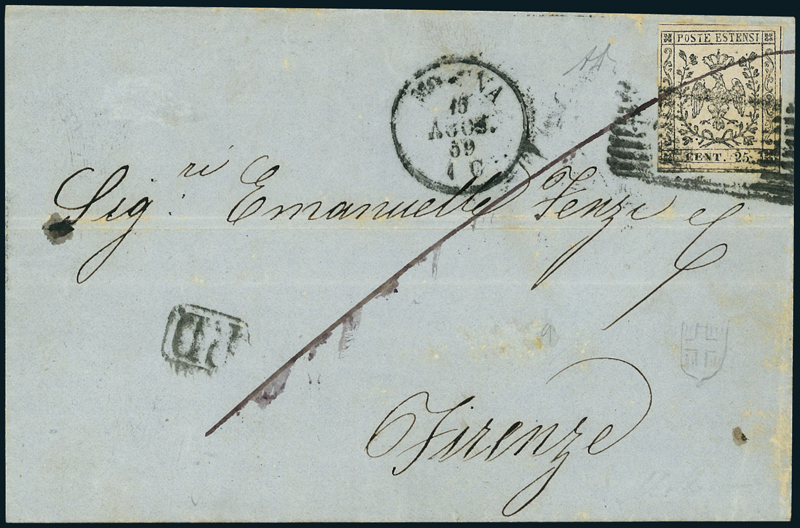 POSTE ESTENSI
CENT. 25.
MODENA
10
AGOS.
59
Sig.ri Emanuelle Fenzi &
PD
Firenze